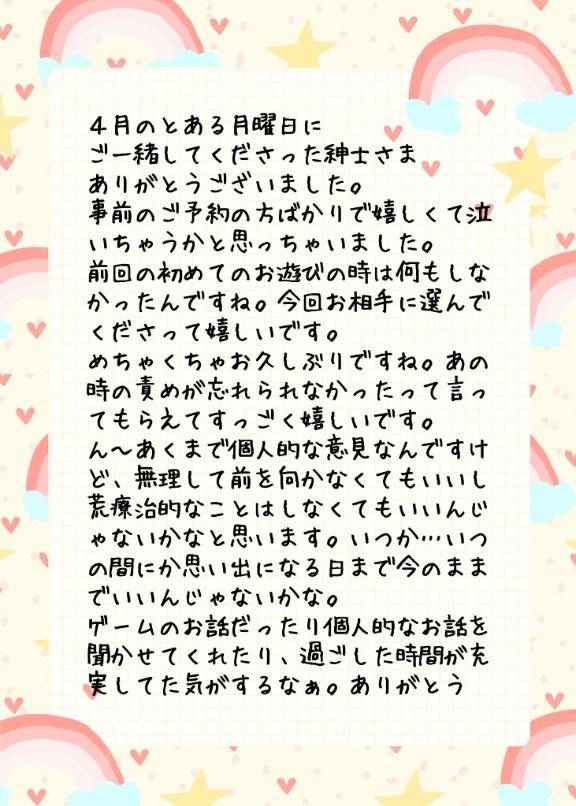 4月のとある月曜日に
ご一緒してくださった紳士さま
ありがとうございました。
事前のご予約の方ばかりで嬉しくて泣
いちゃうかと思っちゃいました。
前回の初めてのお遊びの時は何もしな
かったんですね。今回お相手に選んで
くださって嬉しいです。
めちゃくちゃお久しぶりですね。あの
時の責めが忘れられなかったって言っ
てもらえてすっごく嬉しいです。
ん〜あくまで個人的な意見なんですけ
ど、無理して前を向かなくてもいいし
荒療治的なことはしなくてもいいんじ
ゃないかなと思います。いつか…いつ
の間にか思い出になる日まで今のまま
でいいんじゃないかな。
ゲームのお話だったり個人的なお話を
聞かせてくれたり、過ごした時間が充
実してた気がするなぁ。ありがとう